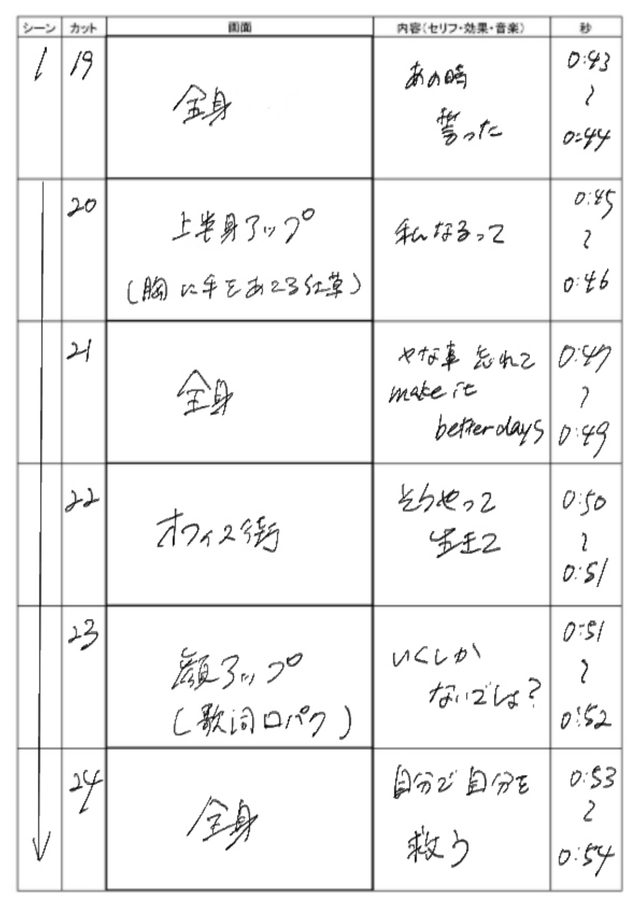 シーン カット 画面 内容(セリフ・効果・音楽) 秒
1 19 全身 あの時 0:43
誓った 〜
0:44
20 上半身アップ 私なるって 0:45
(胸に手をあてる仕草) 〜
0:46
21 全身 やな事 忘れて 0:47
make it 〜
better days 0:49
22 オフィス街 そうやって 0:50
生きて 〜
0:51
23 顔アップ いくしか 0:51
(歌詞口パク) ないでしょ? 〜
0:52
24 全身 自分で自分を 0:53
救う 〜
0:54